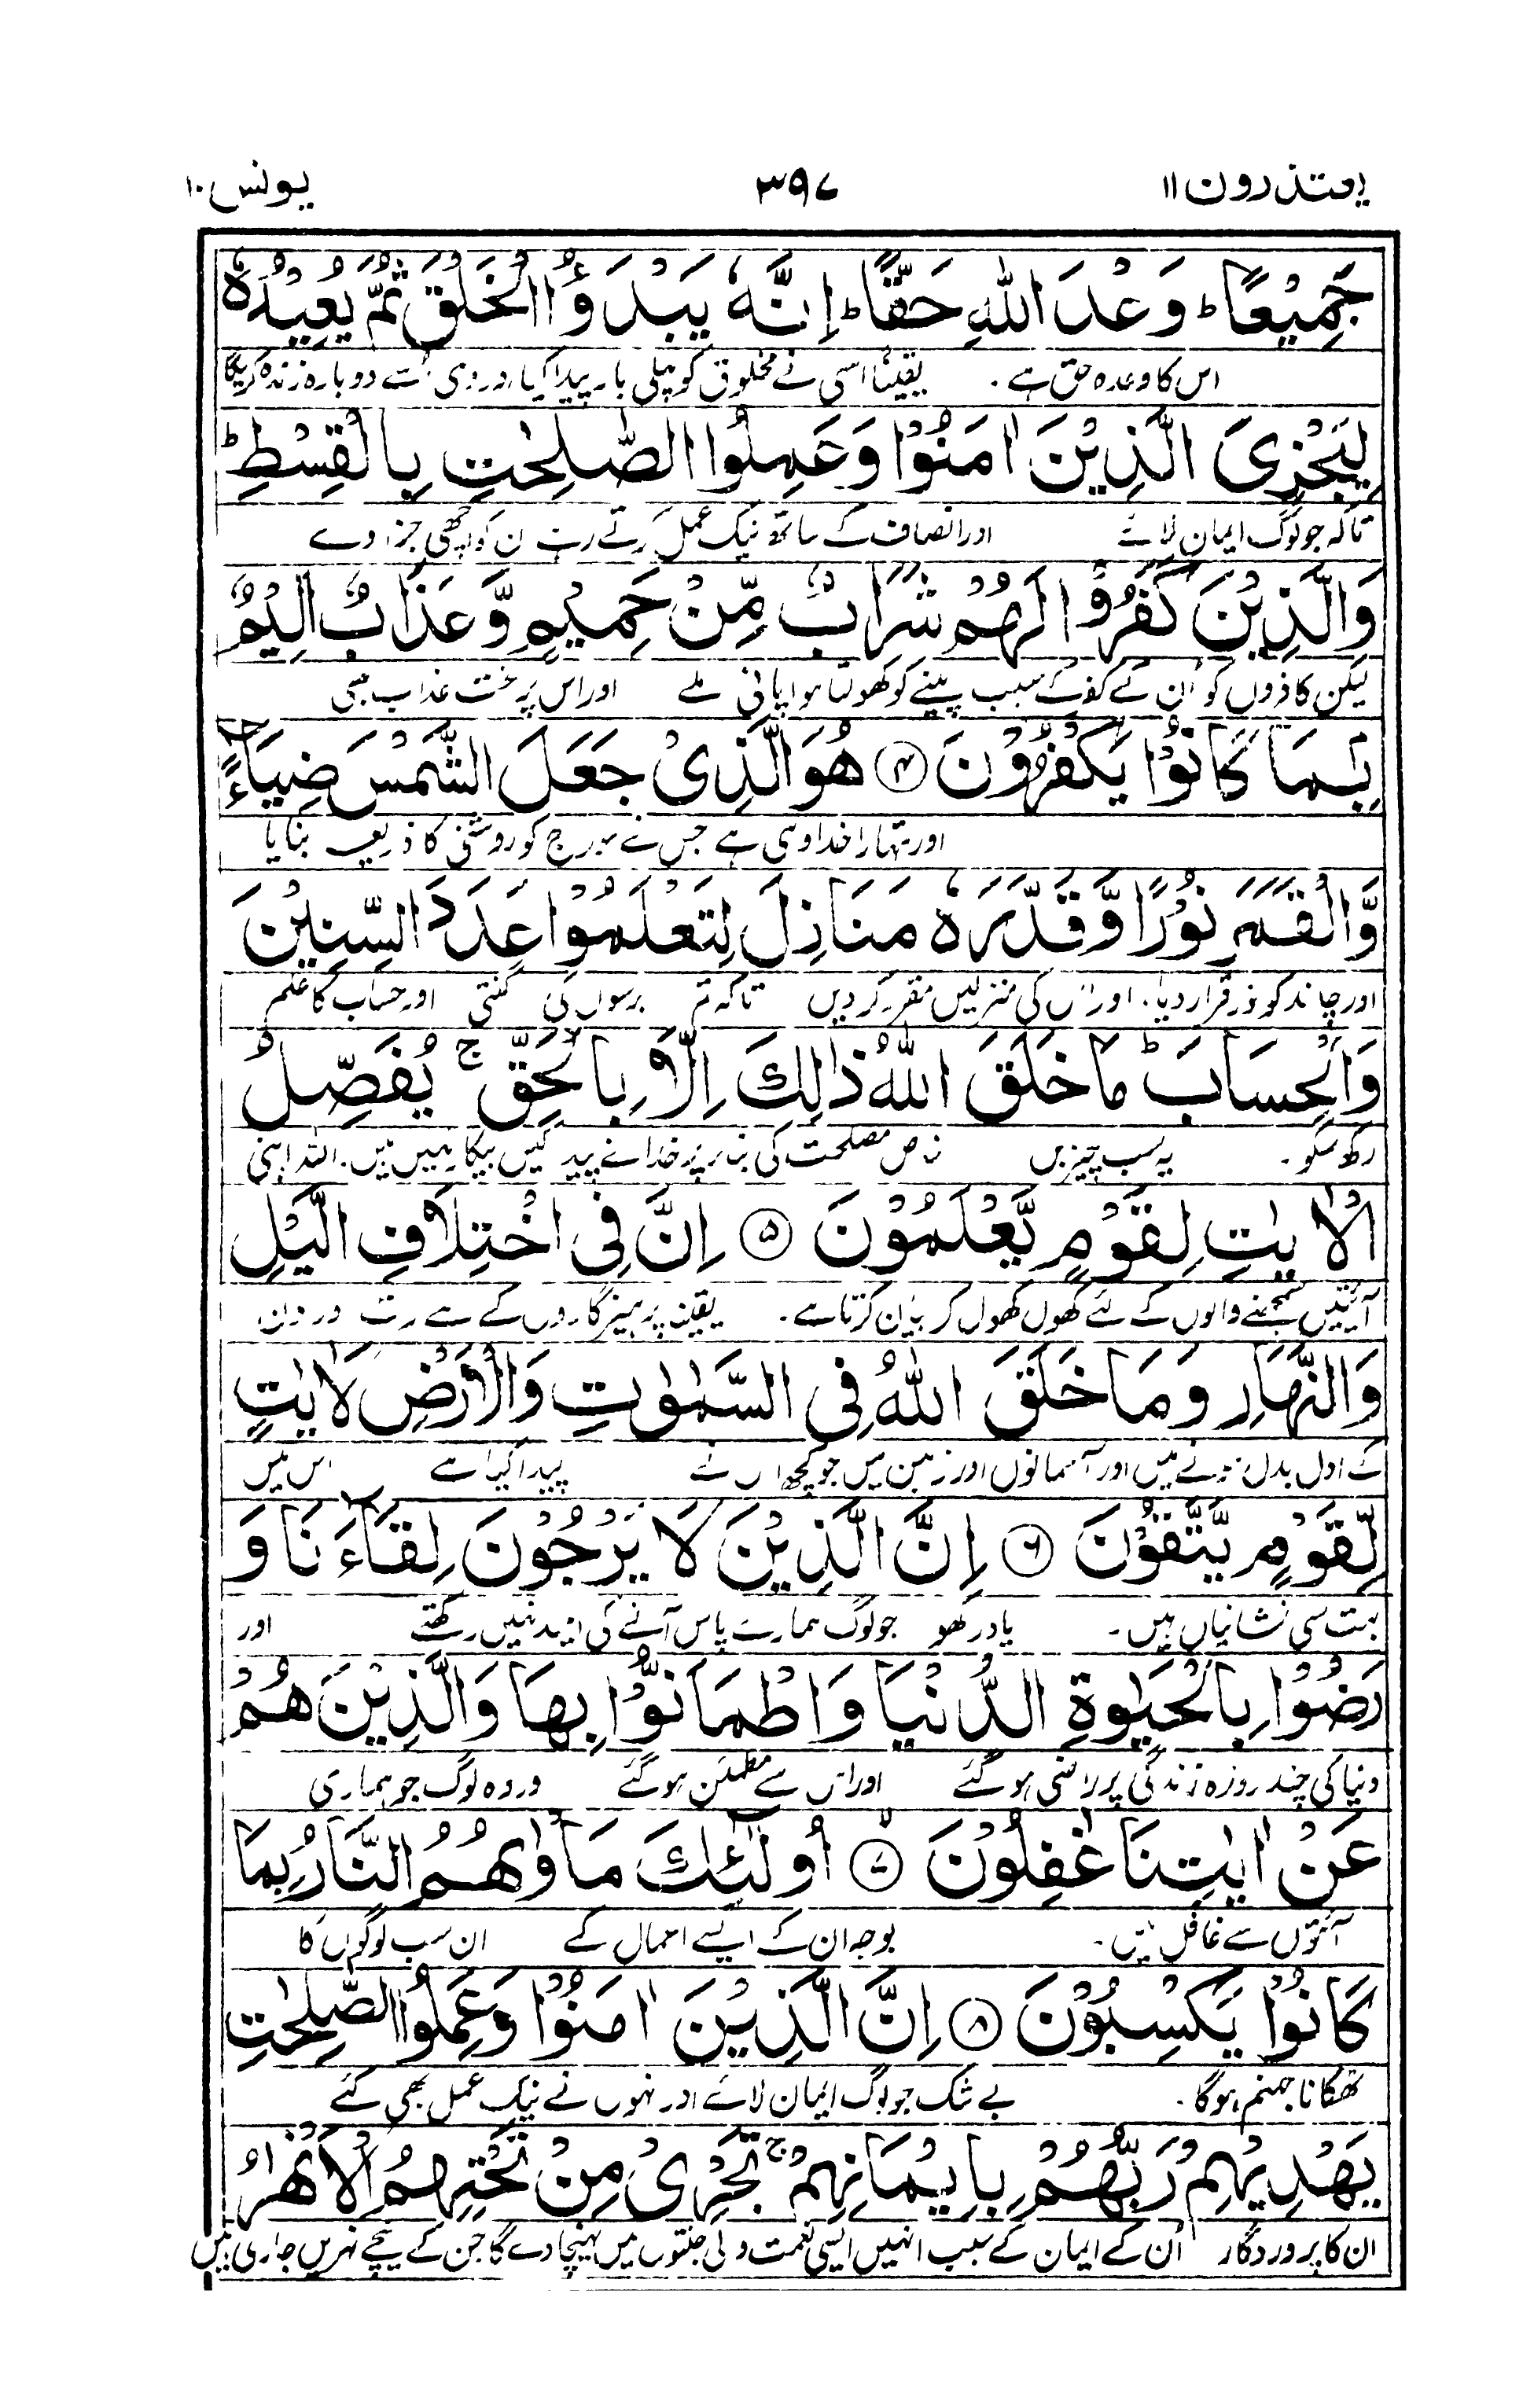 یعتذرون ۱۱
۳۹۷
یونس ۱۰
جَمِيْعًا ؕ وَعْدَ اللّٰهِ حَقًّا ؕ اِنَّهٗ يَبْدَؤُا الْخَلْقَ ثُمَّ يُعِيْدُهٗ
اس کا وعدہ حق ہے ۔ یقیناً اسی نے مخلوق کو پہلی بار پیدا کیا اور وہی اُسے دوبارہ زندہ کریگا
لِيَجْزِيَ الَّذِيْنَ اٰمَنُوْا وَعَمِلُوا الصّٰلِحٰتِ بِالْقِسْطِ ؕ
تاکہ جو لوگ ایمان لائے اور انصاف کے ساتھ نیک عمل کرتے رہے ان کو اچھی جزا دے
وَالَّذِيْنَ كَفَرُوْا لَهُمْ شَرَابٌ مِّنْ حَمِيْمٍ وَّعَذَابٌ اَلِيْمٌۢ
لیکن کافروں کو اُن کے کفر کے سبب پینے کو کھولتا ہوا پانی ملے اور اس پر سخت عذاب بھی
بِمَا كَانُوْا يَكْفُرُوْنَ ﴿۴﴾ هُوَ الَّذِيْ جَعَلَ الشَّمْسَ ضِيَآءً
اور تمہارا خدا وہی ہے جس نے سورج کو روشنی کا ذریعہ بنایا
وَّالْقَمَرَ نُوْرًا وَّقَدَّرَهٗ مَنَازِلَ لِتَعْلَمُوْا عَدَدَ السِّنِيْنَ
اور چاند کو نور قرار دیا ۔ اور اس کی منزلیں مقرر کر دیں تاکہ تم برسوں کی گنتی اور حساب کا علم
وَالْحِسَابَ ؕ مَا خَلَقَ اللّٰهُ ذٰلِكَ اِلَّا بِالْحَقِّ ۚ يُفَصِّلُ
رکھ سکو ۔ یہ سب چیزیں مصلحت کی بنا پر خدا نے پیدا کیں بیکار نہیں ہیں ۔ اللہ اپنی
الْاٰيٰتِ لِقَوْمٍ يَّعْلَمُوْنَ ﴿۵﴾ اِنَّ فِي اخْتِلَافِ الَّيْلِ
آیتیں سمجھنے والوں کے لئے کھول کھول کر بیان کرتا ہے ۔ یقیناً پرہیزگاروں کے لئے رات اور دن
وَالنَّهَارِ وَمَا خَلَقَ اللّٰهُ فِي السَّمٰوٰتِ وَالْاَرْضِ لَاٰيٰتٍ
کے ادل بدل ہونے میں اور آسمانوں اور زمین میں جو کچھ اس نے پیدا کیا ہے اس میں
لِّقَوْمٍ يَّتَّقُوْنَ ﴿۶﴾ اِنَّ الَّذِيْنَ لَا يَرْجُوْنَ لِقَآءَنَا وَ
بہت سی نشانیاں ہیں ۔ یاد رکھو جو لوگ ہمارے پاس آنے کی امید نہیں رکھتے اور
رَضُوْا بِالْحَيٰوةِ الدُّنْيَا وَاطْمَاَنُّوْا بِهَا وَالَّذِيْنَ هُمْ
دنیا کی چند روزہ زندگی پر راضی ہو گئے اور اس سے مطمئن ہو گئے اور وہ لوگ جو ہماری
عَنْ اٰيٰتِنَا غٰفِلُوْنَ ۙ﴿۷﴾ اُولٰٓئِكَ مَاْوٰىهُمُ النَّارُ بِمَا
آیتوں سے غافل ہیں ۔ بوجہ ان کے ایسے اعمال کے ان سب لوگوں کا
كَانُوْا يَكْسِبُوْنَ ﴿۸﴾ اِنَّ الَّذِيْنَ اٰمَنُوْا وَعَمِلُوا الصّٰلِحٰتِ
ٹھکانا جہنم ہوگا ۔ بے شک جو لوگ ایمان لائے اور انہوں نے نیک عمل بھی کئے
يَهْدِيْهِمْ رَبُّهُمْ بِاِيْمَانِهِمْ ۚ تَجْرِيْ مِنْ تَحْتِهِمُ الْاَنْهٰرُ
ان کا پروردگار اُن کے ایمان کے سبب انہیں ایسی نعمت والی جنتوں میں پہنچا دے گا جن کے نیچے نہریں جاری ہیں